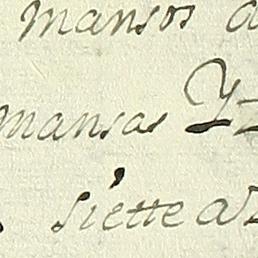 mansos
mansas Y
siette